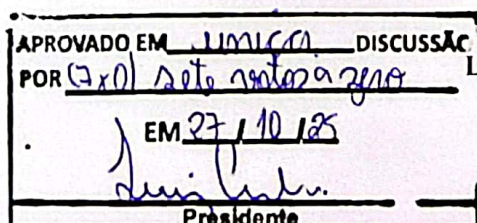 APROVADO EM unica DISCUSSÃO
POR (7x0) sete votos a zero
EM 27 / 10 / 25
Presidente